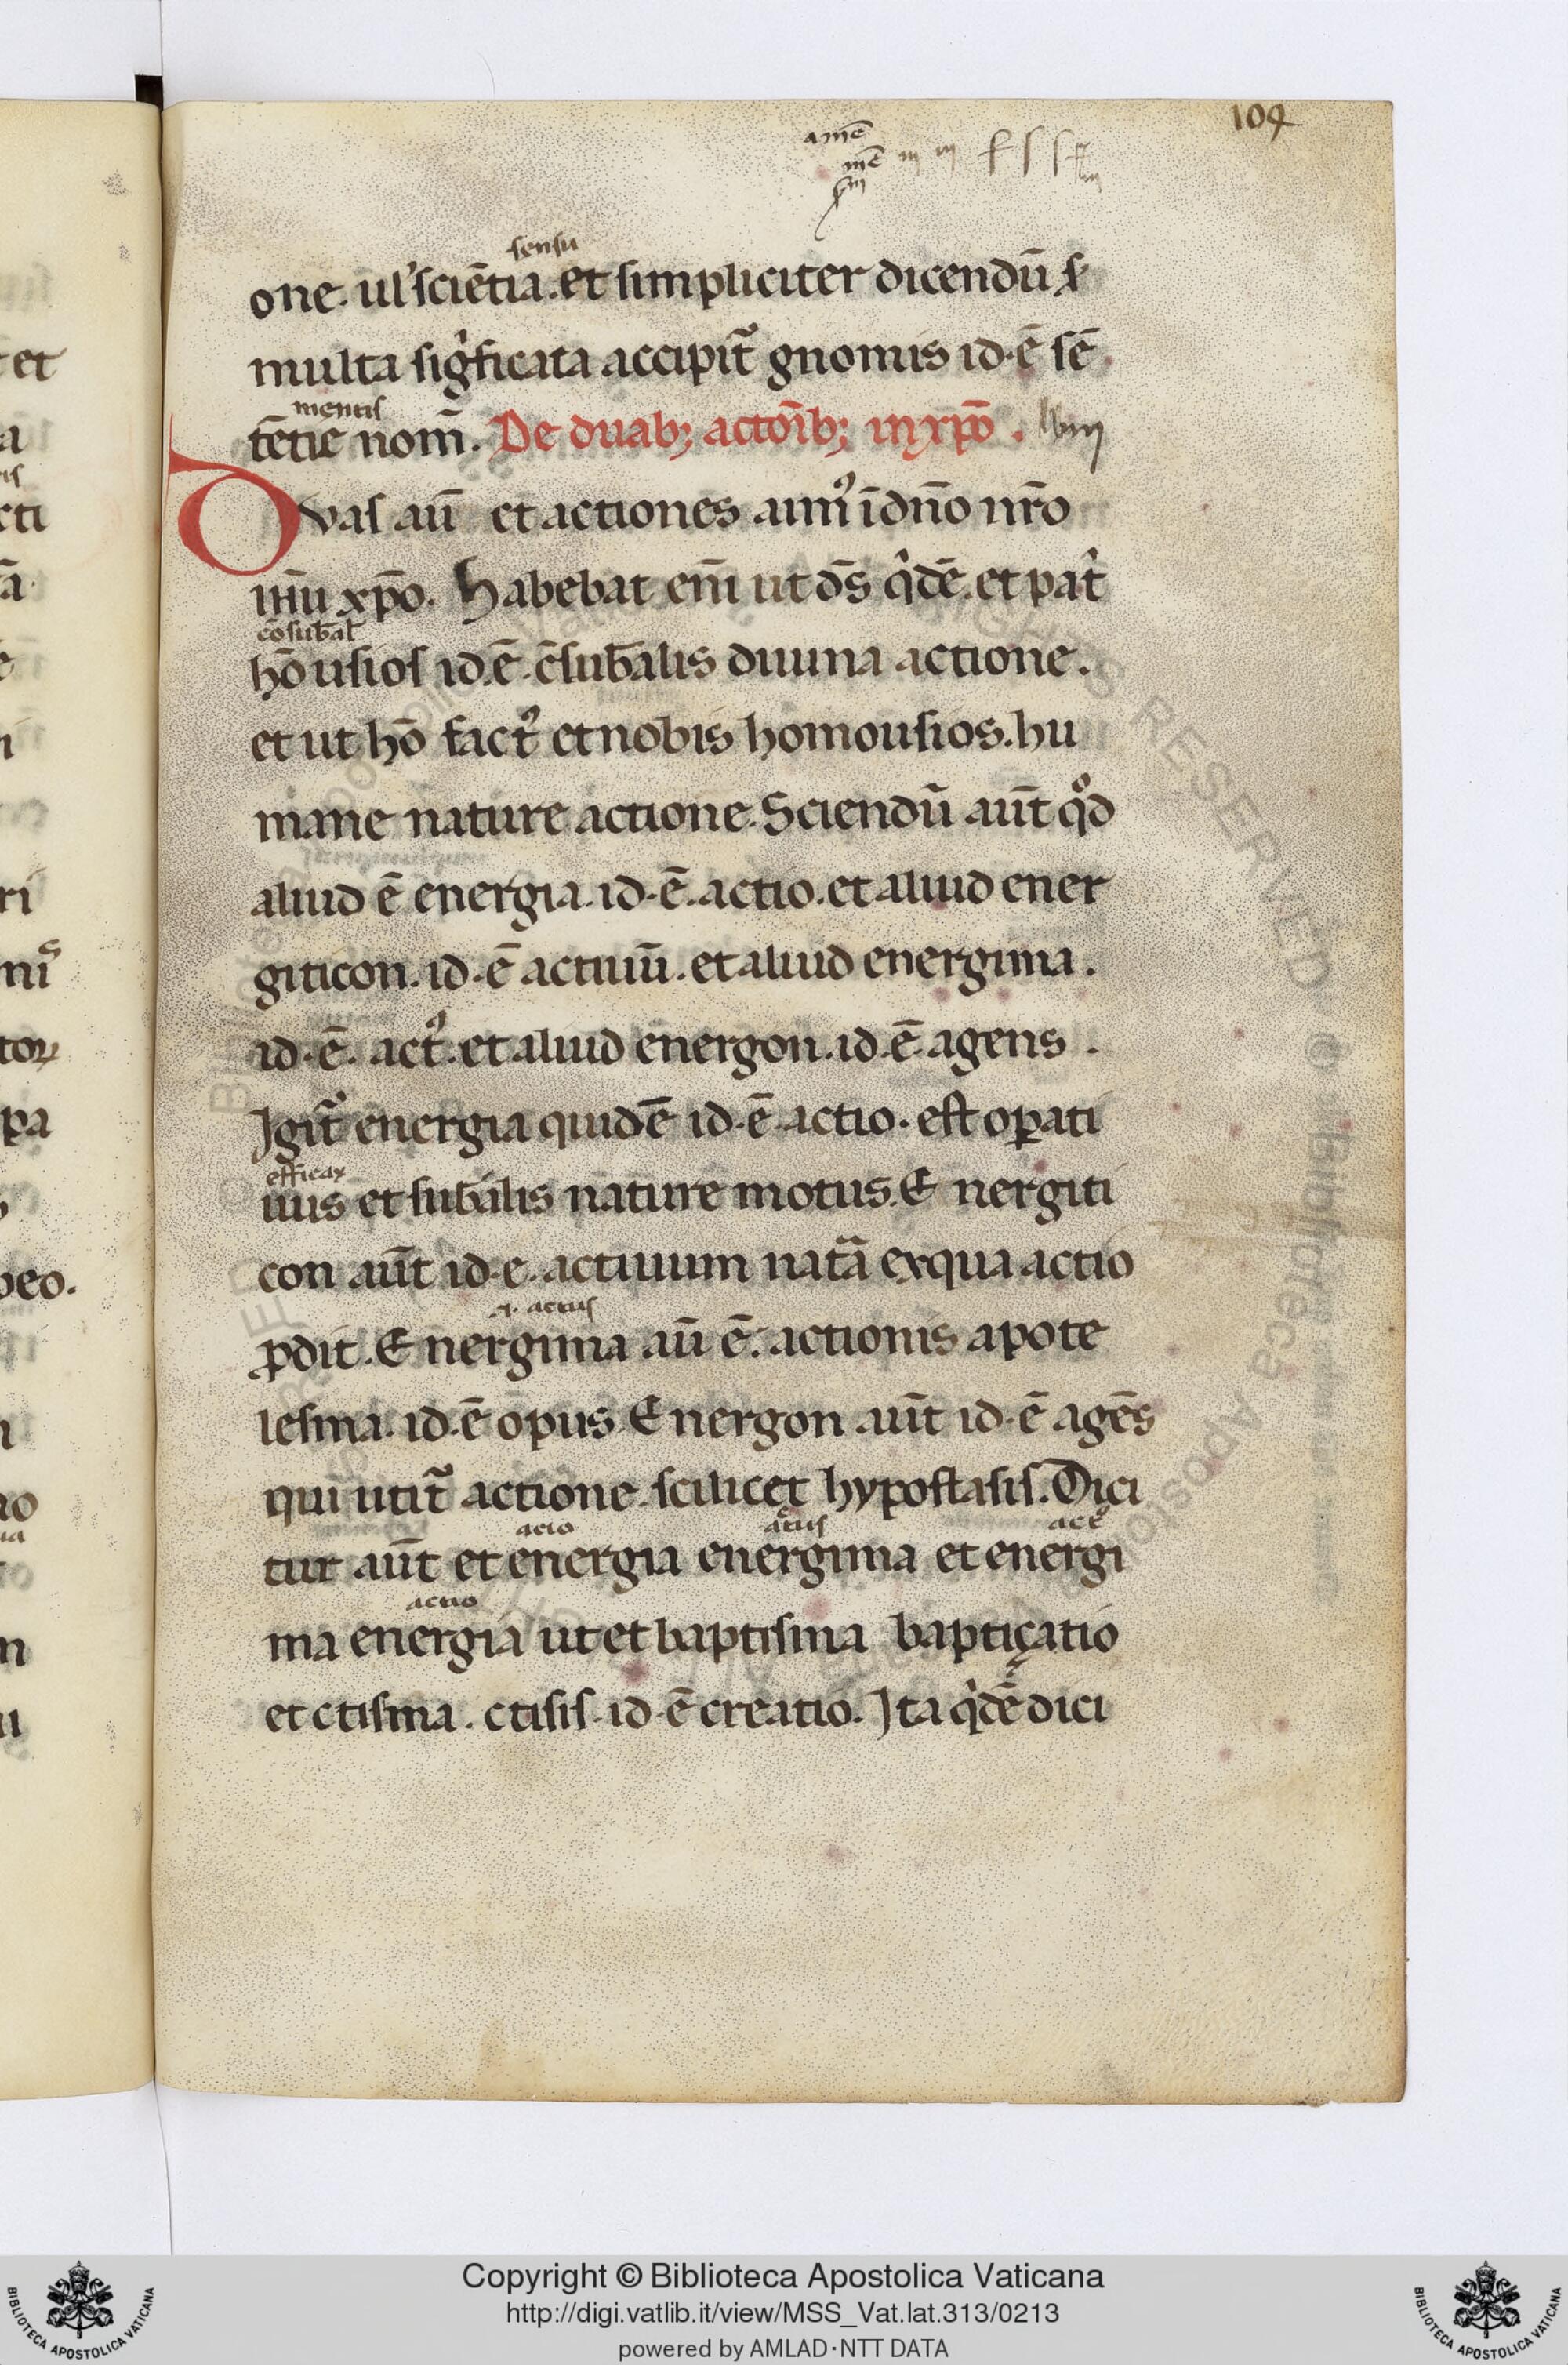 104
amē
mē m m f ſ ſ
sensu
one. ul' sciētia. et simpliciter dicendū s̄
multa sigͥficata accipit᷑ gnomis id·ē sē
mentis
tētie nom̄. De duab; actoīb; inxp̄o. lviii
Dvas aū et actiones aim᷒ īdn̄o nr̄o
ihū xp̄o. Habebat em̄ ut dс̄ qͥdē. et patͥ
cōsubal̄
hōusios id.ē. c̄sub̄alis diuina actione.
et ut hō fact᷒ et nobis homousios. hu
mane nature actione. Sciendū aūt qͦd
aliud ē energia. id·ē. actio. et aliud ener
giticon. id·ē actiuū. et aliud energima.
id·ē. act᷒. et aliud energon. id.ē. agens.
Igit᷑ energia quidē id·ē. actio. est oꝑati
efficax
uus et sub̄alis nature motus. Energiti
con aūt id·e. actiuum natᷓa exqua actio
ꝓdit. Energima aū ē. actionis apote
.i. actus
lesma. id.ē opus Energon aūt id·ē agēs
qui utit᷑ actione. scilicet hypostasis. Dici
acio actus act᷒
tur aūt et energia energima et energi
actio
ma energia ut et baptisma baptiçatio
et ctisma. ctisis. id·ē creatio. Ita qͥdē dici
Copyright © Biblioteca Apostolica Vaticana
http://digi.vatlib.it/view/MSS_Vat.lat.313/0213
powered by AMLAD·NTT DATA
BIBLIOTECA APOSTOLICA VATICANA
BIBLIOTECA APOSTOLICA VATICANA